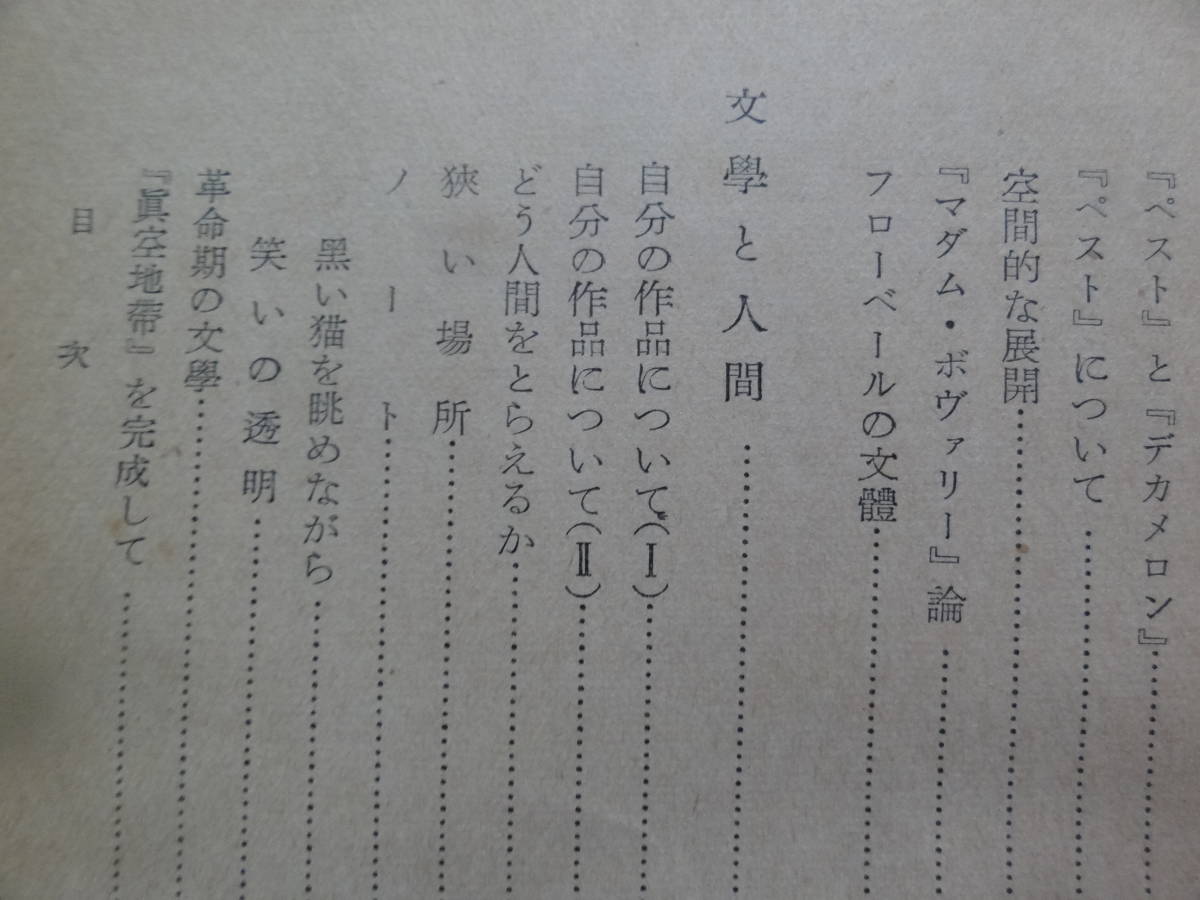 『ペスト』と『デカメロン』…………
『ペスト』について…………
空間的な展開…………
『マダム・ボヴァリー』論…………
フローベールの文體…………
文學と人間…………
自分の作品について(Ⅰ)…………
自分の作品について(Ⅱ)…………
どう人間をとらえるか…………
狹い場所…………
ノート…………
黑い猫を眺めながら…………
笑いの透明…………
革命期の文學…………
『眞空地帶』を完成して…………
目次